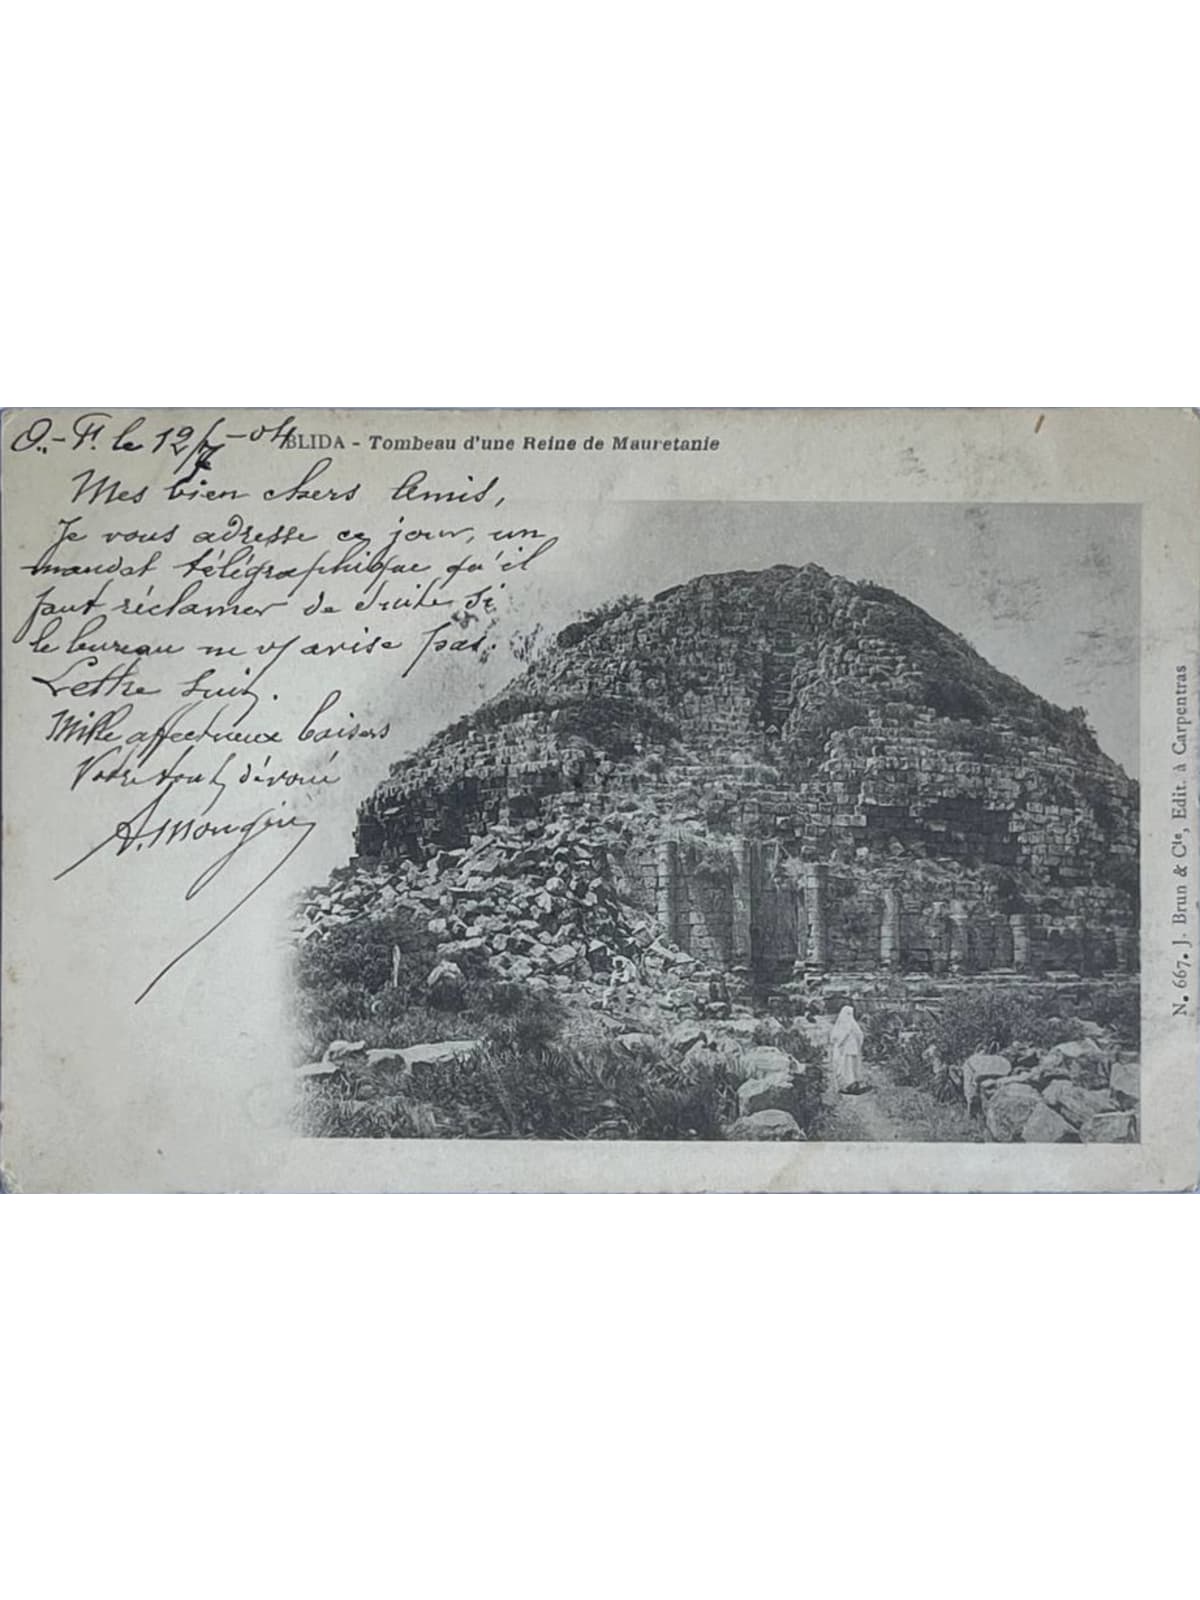 O.-F. le 12/7-04
BLIDA - Tombeau d'une Reine de Mauretanie
Mes bien chers Amis,
Je vous adresse ce jour, un
mandat télégraphique qu'il
faut réclamer de suite si
le bureau n'avise pas.
Lettre suit.
Mille affectueux baisers
Votre tout dévoué
A. Mougin
N. 667. J. Brun & Cie, Edit. à Carpentras